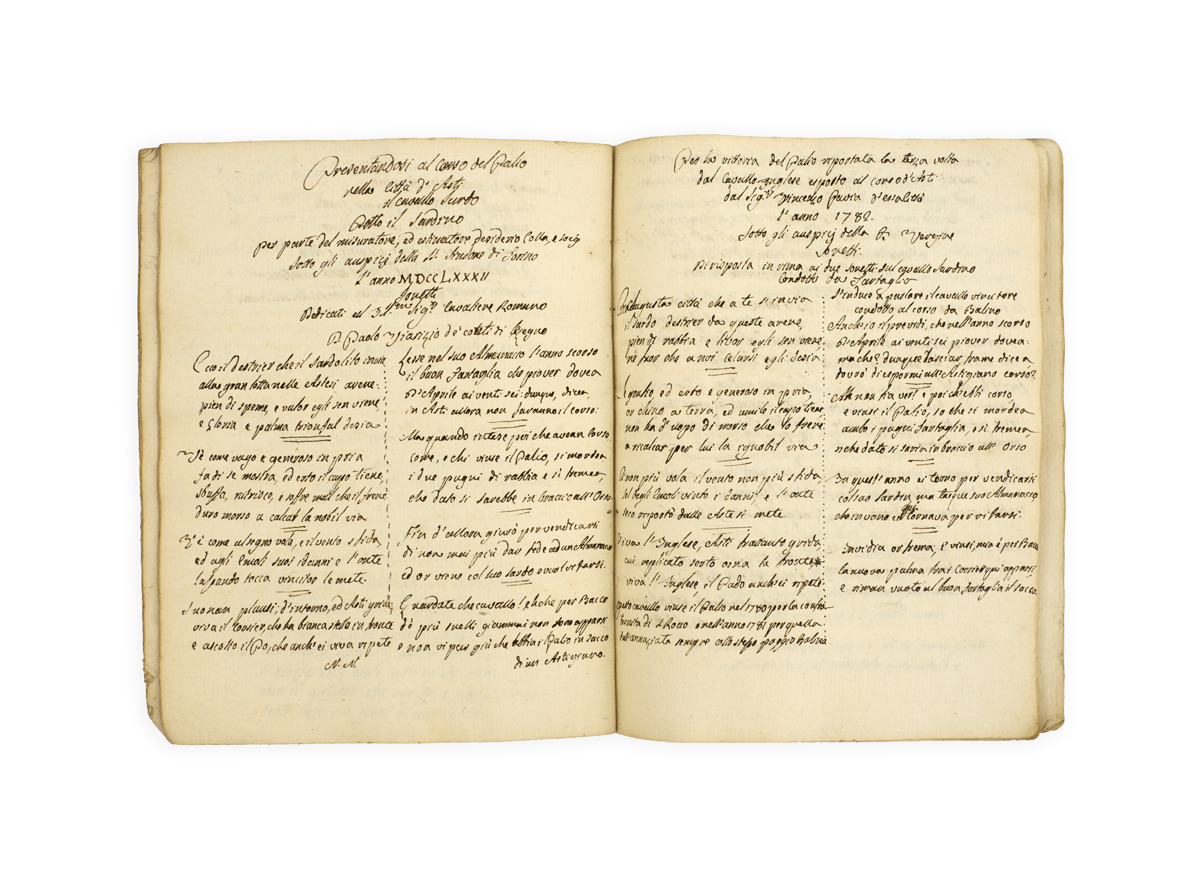 Presentandosi al Corso del Palio
nella Città d'Asti
il cavallo Sardo
detto il Sardino
per parte del misuratore, ed estimatore desiderio Colla, e socij
Sotto gli auspicj della di Torino
l'anno MDCCLXXXII
Sonetti
Dedicati al Sig.r Cavaliere Romano
D. Paolo de' conti di
Ecco il destrier che il Sardo lito invia
alla gran lotta nelle Astesi arene:
pien di speme, e valor egli sen viene,
e gloria e palma trionfal desia
Ve' come vago e generoso in pria
fa di se mostra, ed erto il capo tiene,
sbuffa, nitrisce, e soffre mal che il frene
duro morso a calcar la nobil via
Ve' come al segno vola, e il vento sfida
ed agli Emoli suoi i danni e l'onte
lasciando tocca vincitor le mete.
Suonan plausi, d'intorno, ed Asti grida
viva il Corsier, che ha bianca stella in fronte
e ascolto il Po, che anch'ei viva ripete
N. N.
Lesse nel suo Almanacco l'anno scorso
il buon Tartaglia che piover dovea
D'Aprile ai venti sei: dunque, dicea,
in Asti allora non faranno il corso:
Ma quando intese poi che avean corso
come, e chi vinse il Palio, si mordea
i due pugni di rabbia e si fremea,
che dato si sarebbe in braccio all'Orso
Fin d'allora giurò per vendicarsi
di non mai più dar fede ad un Almanacco
ed or viene col suo sardo e vuol rifarsi.
Guardate che cavallo! e che per Bacco
de' più snelli giammai non apparsi
e non vi par già che abbia il Palio in sacco
di un Artigiano.
Per la vittoria del Palio riportata la terza volta
dal Cavallo Inglese esposto al corso d'Asti
dal Sig.r Vincenzo Pavia d'
l'anno 1782.
Sotto gli auspicj della B. Vergine
Sonetti
Di risposta in rima ai due sonetti sul cavallo Sardino
condotto da Tartaglia
augusta città che a te s'invia
il sardo destrier da queste arene,
pien di rabbia e livor egli sen viene
ne può che a noi celarsi egli desia
Robusto, ed erto e generoso in pria,
or chino a terra, ed umile il capo tiene
non ha d'uopo di morso che lo frene
a ricalcar per lui la ignobil via
E non più vola il vento non più sfida
ed degli Emoli vinto i danni e l'onte
seco riportò dalle Astesi mete
Viva l'Inglese, Asti frattanto grida
cui replicato serto orna la fronte
viva l'Inglese, il Pado anch'ei ripete
questo cavallo vinse il Palio nel 1780 per la
di S. Rocco e nell'anno 1781 per quella
dell'annunziata sempre collo stesso Balin
S'induce a parlare il cavallo vincitore
condotto al corso da Balino
Anch'io riprevidi, che nell'anno scorso
D'Aprile ai venti sei piover dovea
ma che? dunque lasciar frame dicea
dovrò di espormi all'Astigiano corso?
Ah non fia ver! e poiché ebbi corso,
e vinsi il Palio, so che si mordea
ambo i pugni Tartaglia, e si fremea,
né che dato si saria in braccio all'Orso
In quest'anno ei tornò per vendicarsi
col suo sardin, ma tacque suo Almanacco
che invano ei tornava per rifarsi.
Invidia or frema, è vinsi, mia è per Bacco
la nuova palma fra i Corsieri quì apparsi,
e riman vuoto al buon Tartaglia il sacco.